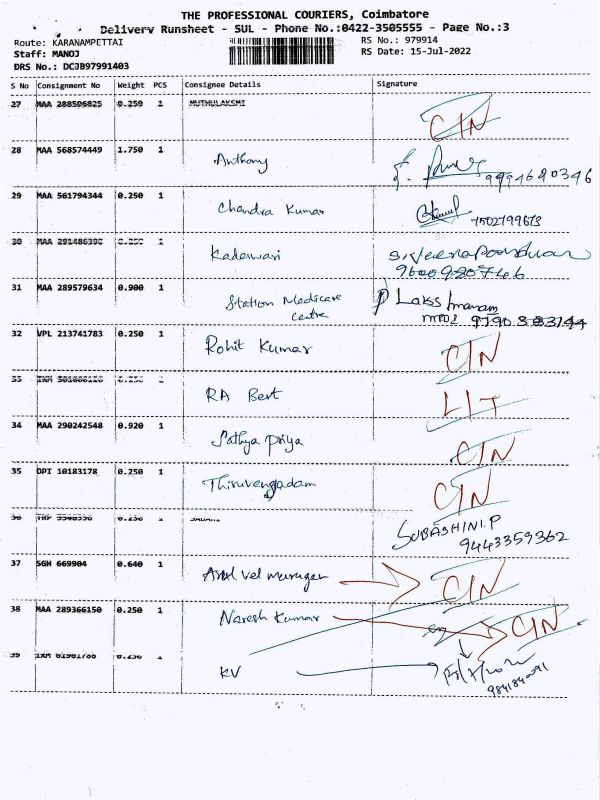 THE PROFESSIONAL COURIERS, Coimbatore
Delivery Runsheet - SUL - Phone No.:0422-3505555 - Page No.:3
Route: KARANAMPETTAI
RS No.: 979914
Staff: MANOJ
RS Date: 15-Jul-2022
DRS No.: DCJB97991403
S No Consignment No Weight PCS Consignee Details Signature
27 MAA 288596825 0.250 1 MUTHULAKSMI
CIN
28 MAA 568574449 1.750 1 Anthony
9994680346
29 MAA 561794344 0.250 1 Chandra Kumar
7502799673
30 MAA 291486390 1 Kadeswari
9600920746
31 MAA 289579634 0.900 1 Station Medicare Centre
32 VPL 213741783 0.250 1 Rohit Kumar CIN
33 RA Bert LIT
34 MAA 290242548 0.920 1 Sathya Priya CIN
35 DPI 10183178 0.250 1 Thiruvengadam CIN
36 0.250 1 SUBASHINI.P
9443359362
37 SGH 669904 0.640 1 Arul vel murugan CIN
38 MAA 289366150 0.250 1 Naresh Kumar CIN
39 0.250 1 KV